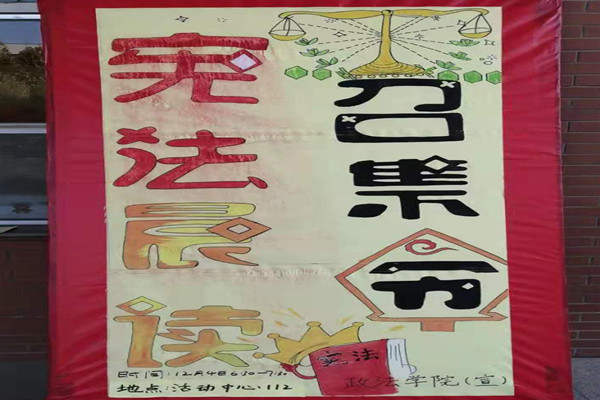 宪法晨读
召集令
宪法
时间:12月4日6:50-7:30
地点:活动中心112
政法学院(宣)